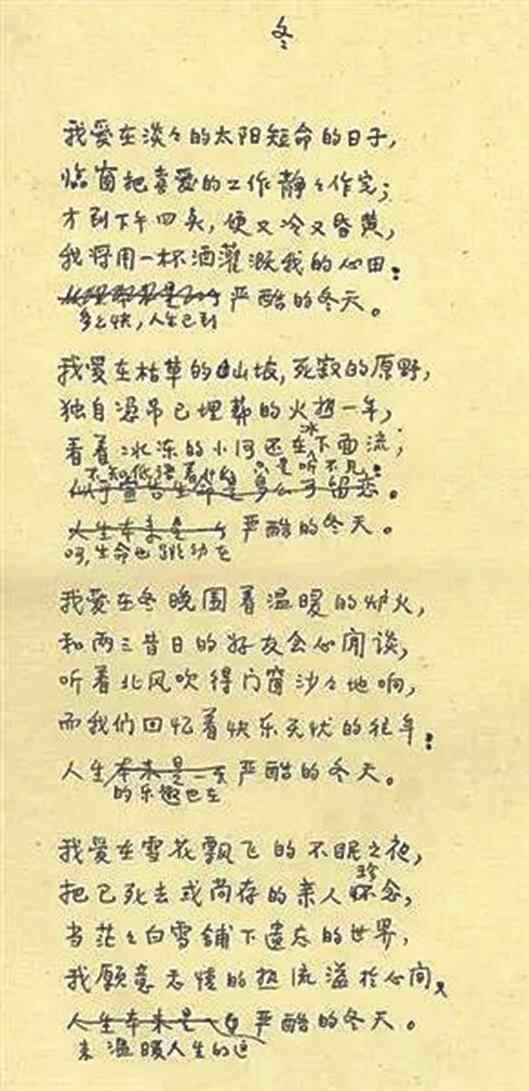 冬
我爱在淡々的太阳短命的日子，
临窗把喜爱的工作静々作完；
才到下午四点，便又冷又昏黄，
我将用一杯酒灌溉我的心田：
严酷的冬天。
多么快，人生已到
我爱在枯草的山坡，死寂的原野，
独自凭吊已埋葬的火热一年，
冰
看着冰冻的小河还在下面流；
不知低语着什么 只是听不见：
似乎宣告生命是多么可留恋。
人生本来是一个严酷的冬天。
呵，生命也跳动在
我爱在冬晚围着温暖的炉火，
和两三昔日的好友会心闲谈，
听着北风吹得门窗沙々地响，
而我们回忆着快乐无忧的往年：
人生本来是一个严酷的冬天。
的乐趣也在
我爱在雪花飘飞的不眠之夜，
珍
把已死去或尚存的亲人怀念，
当茫々白雪铺下遗忘的世界，
我愿意感情的热流溢于心间，
人生本来是一个严酷的冬天。
来温暖人生的这